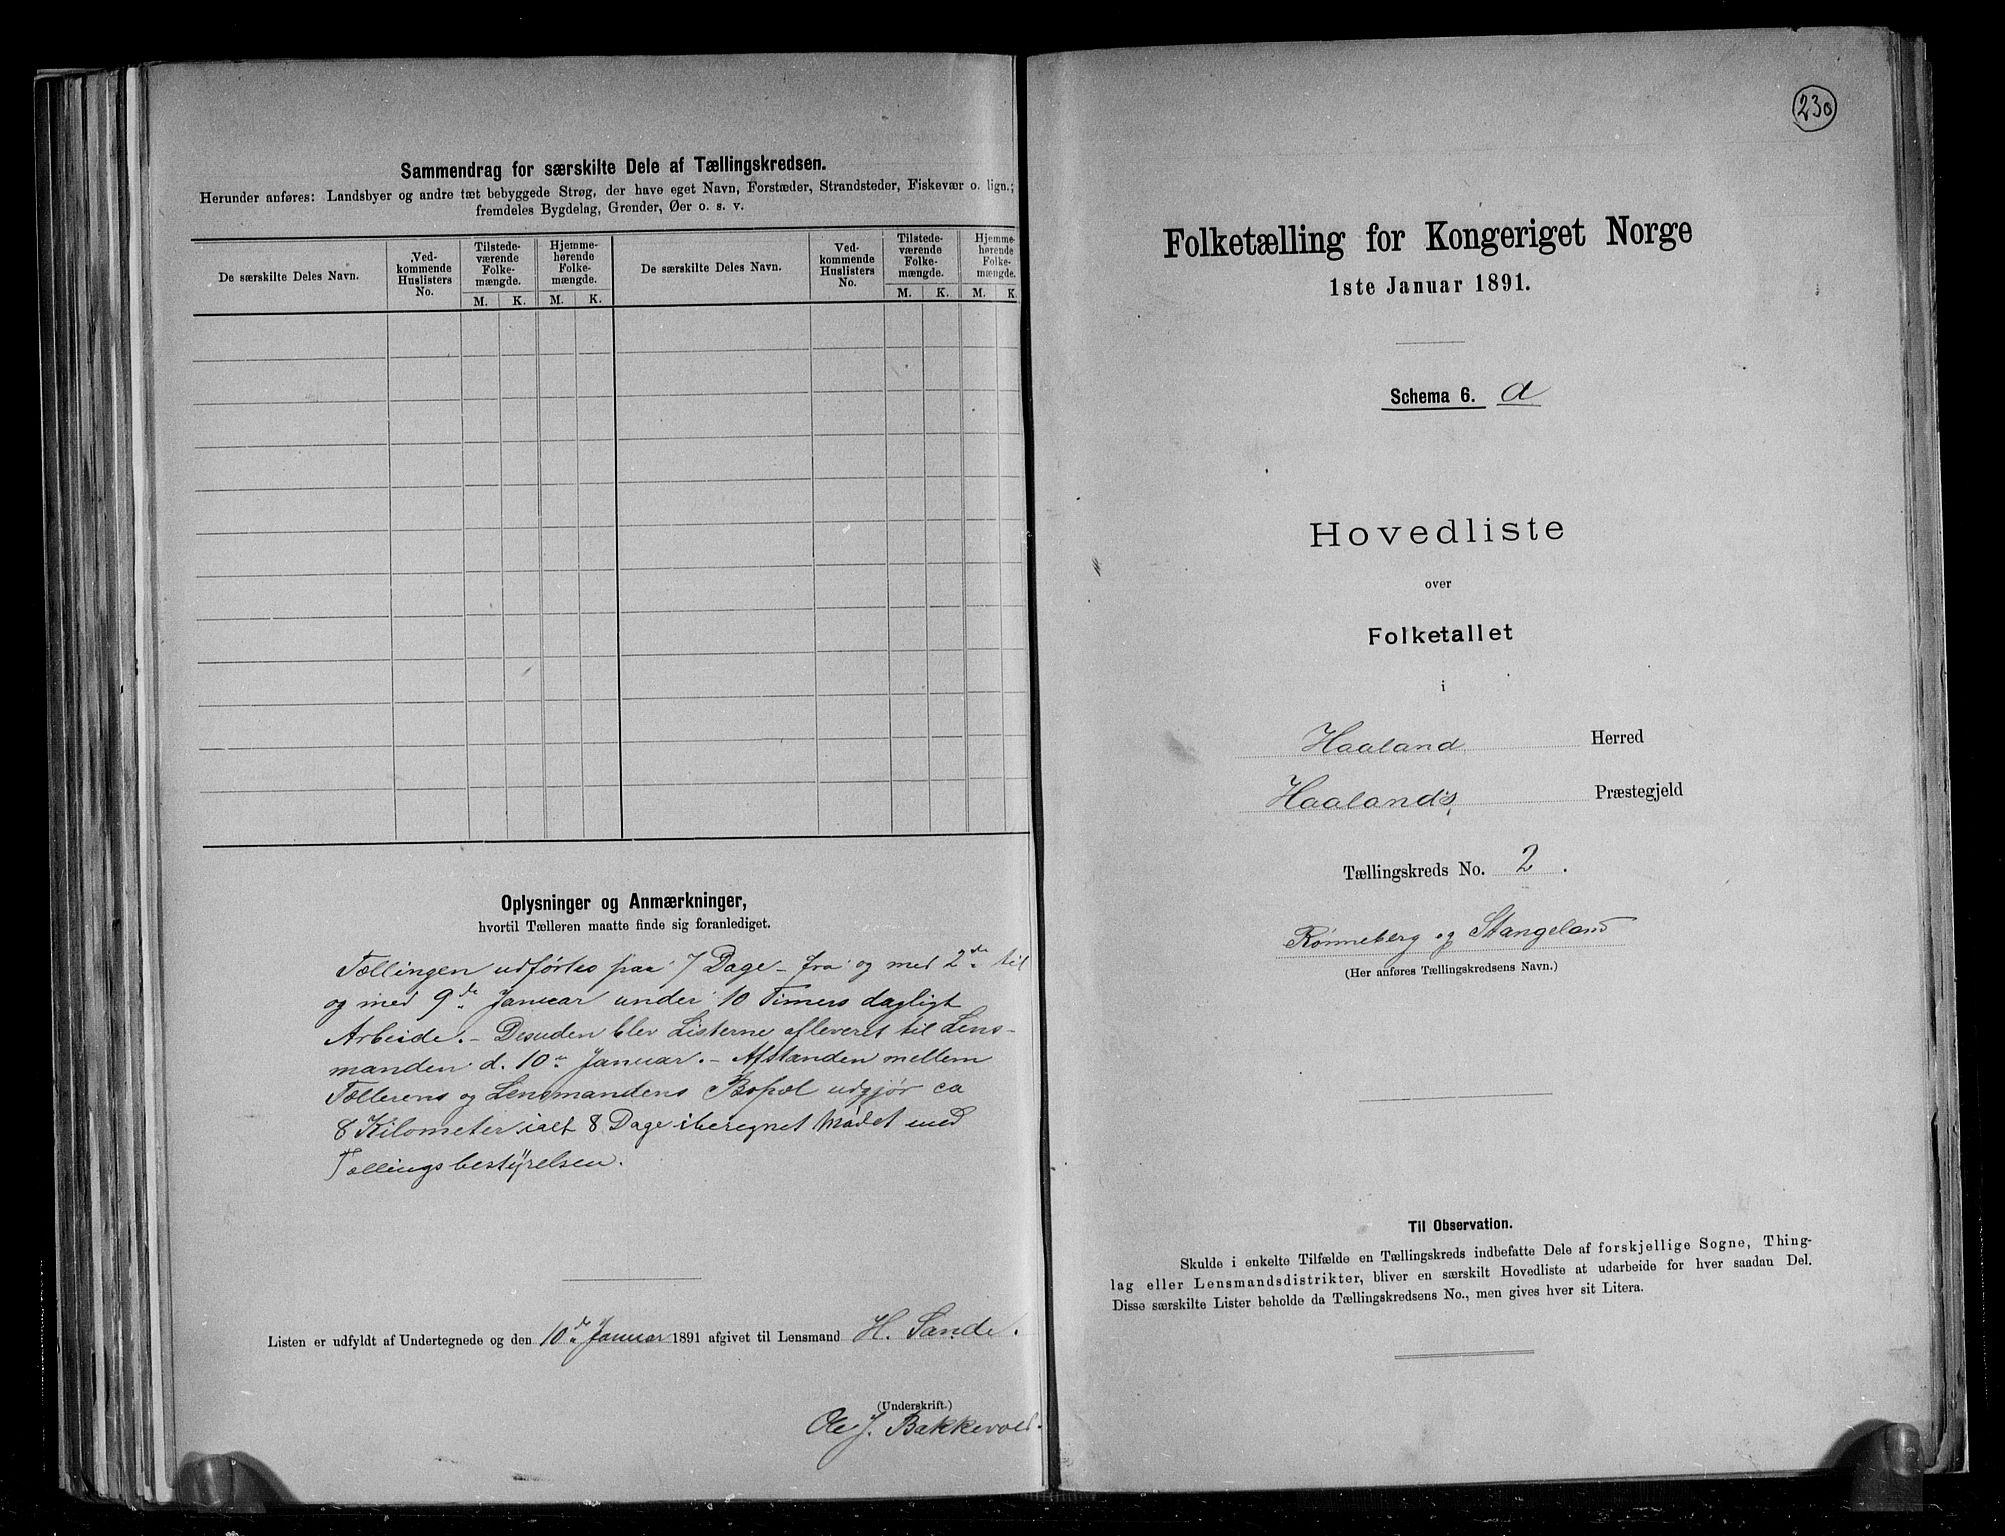 Sammendrag for særskilte Dele af Tællingskredsen.
Herunder anføres: Landsbyer og andre tæt bebyggede Strøg, der have eget Navn, Forstæder, Strandsteder, Fiskevær o. lign.;
fremdeles Bygdelag, Grender, Øer o. s. v.
De særskilte Deles Navn.
Ved-
kommende
Huslisters
No.
Tilstede-
værende
Folke-
mængde.
M. K.
Hjemme-
hørende
Folke-
mængde.
M. K.
De særskilte Deles Navn.
Ved-
kommende
Huslisters
No.
Tilstede-
værende
Folke-
mængde.
M. K.
Hjemme-
hørende
Folke-
mængde.
M. K.
Oplysninger og Anmærkninger,
hvortil Tælleren maatte finde sig foranlediget.
Tællingen udførtes paa 7 Dage – fra og med 2de til
og med 9de Januar under 10 Timers dagligt
Arbeide. – Desuden blev Listerne afleveret til Lens-
manden d. 10de Januar. – Afstanden mellem
Tællerens og Lensmandens Bopæl udgjør ca
8 Kilometer, ialt 8 Dage iberegnet Mødet med
Tællingsbestyrelsen.
Listen er udfyldt af Undertegnede og den 10de Januar 1891 afgivet til Lensmand H. Sande.
(Underskrift.)
Ole J. Bakkevold.
230
Folketælling for Kongeriget Norge
1ste Januar 1891.
Schema 6. a
Hovedliste
over
Folketallet
i
Haaland Herred
Haalands Præstegjeld
Tællingskreds No. 2.
Rønneberg og Stangeland
(Her anføres Tællingskredsens Navn.)
Til Observation.
Skulde i enkelte Tilfælde en Tællingskreds indbefatte Dele af forskjellige Sogne, Thing-
lag eller Lensmandsdistrikter, bliver en særskilt Hovedliste at udarbeide for hver saadan Del.
Disse særskilte Lister beholde da Tællingskredsens No., men gives hver sit Litera.